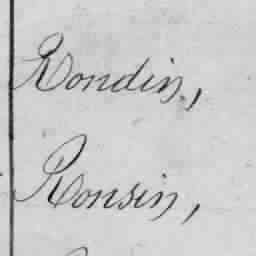 Rondin,
Ronsin,